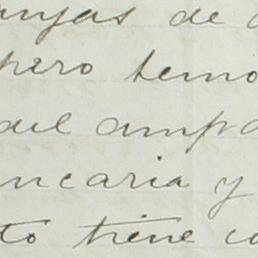 de
pero temo
del ampa
ncaria y
to tiene co